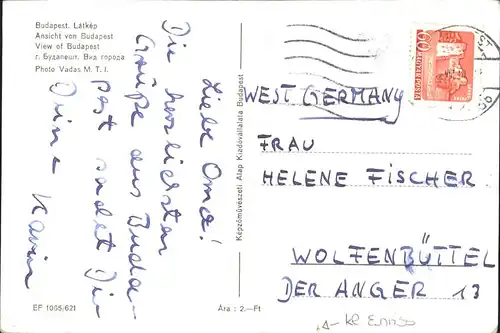 Budapest. Látkép
Ansicht von Budapest
View of Budapest
г. Будапешт. Вид города
Photo Vadas M. T. I.
Liebe Oma!
Die herzlichsten
Grüße aus Buda-
pest sendet Dir
Deine Karin
EF 1055/621
Ára : 2.–Ft
Képzőművészeti Alap Kiadóvállalata Budapest
60
MAGYAR POSTA
WEST GERMANY
FRAU
HELENE FISCHER
WOLFENBÜTTEL
DER ANGER 13